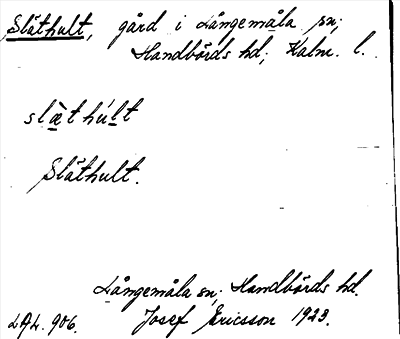 Slåthult, gård i Långemåla sn;
Handbörds hd; Kalm. l.
slæ̀t hú̱lt
Slåthult.
Långemåla sn; Handbörds hd.
LAL. 906. Josef Ericsson 1923.